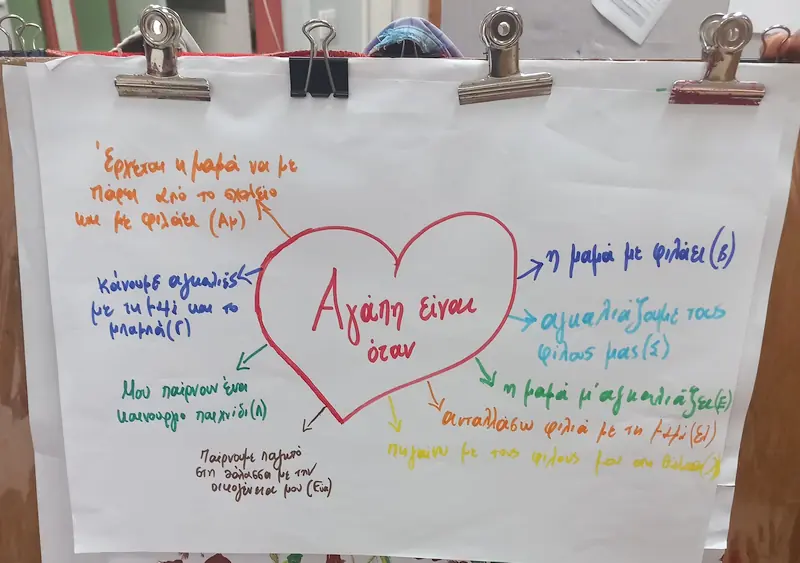 Αγάπη είναι
όταν
Έρχεται η μαμά να με
πάρει από το σχολείο
και με φιλάει (Αμ)
κάνουμε αγκαλιές
με τη μαμά και το
μπαμπά (Γ)
Μου παίρνουν ένα
καινούργιο παιχνίδι (Λ)
Παίρνουμε παγωτό
στη θάλασσα με την
οικογένεια μου (Ευα)
η μαμά με φιλάει (Β)
αγκαλιάζουμε τους
φίλους μας (Σ)
η μαμά μ' αγκαλιάζει (Ε)
ανταλλάσω φιλιά με τη μαμά (Ει)
πηγαίνω με τους φίλους μου στη θάλασσα